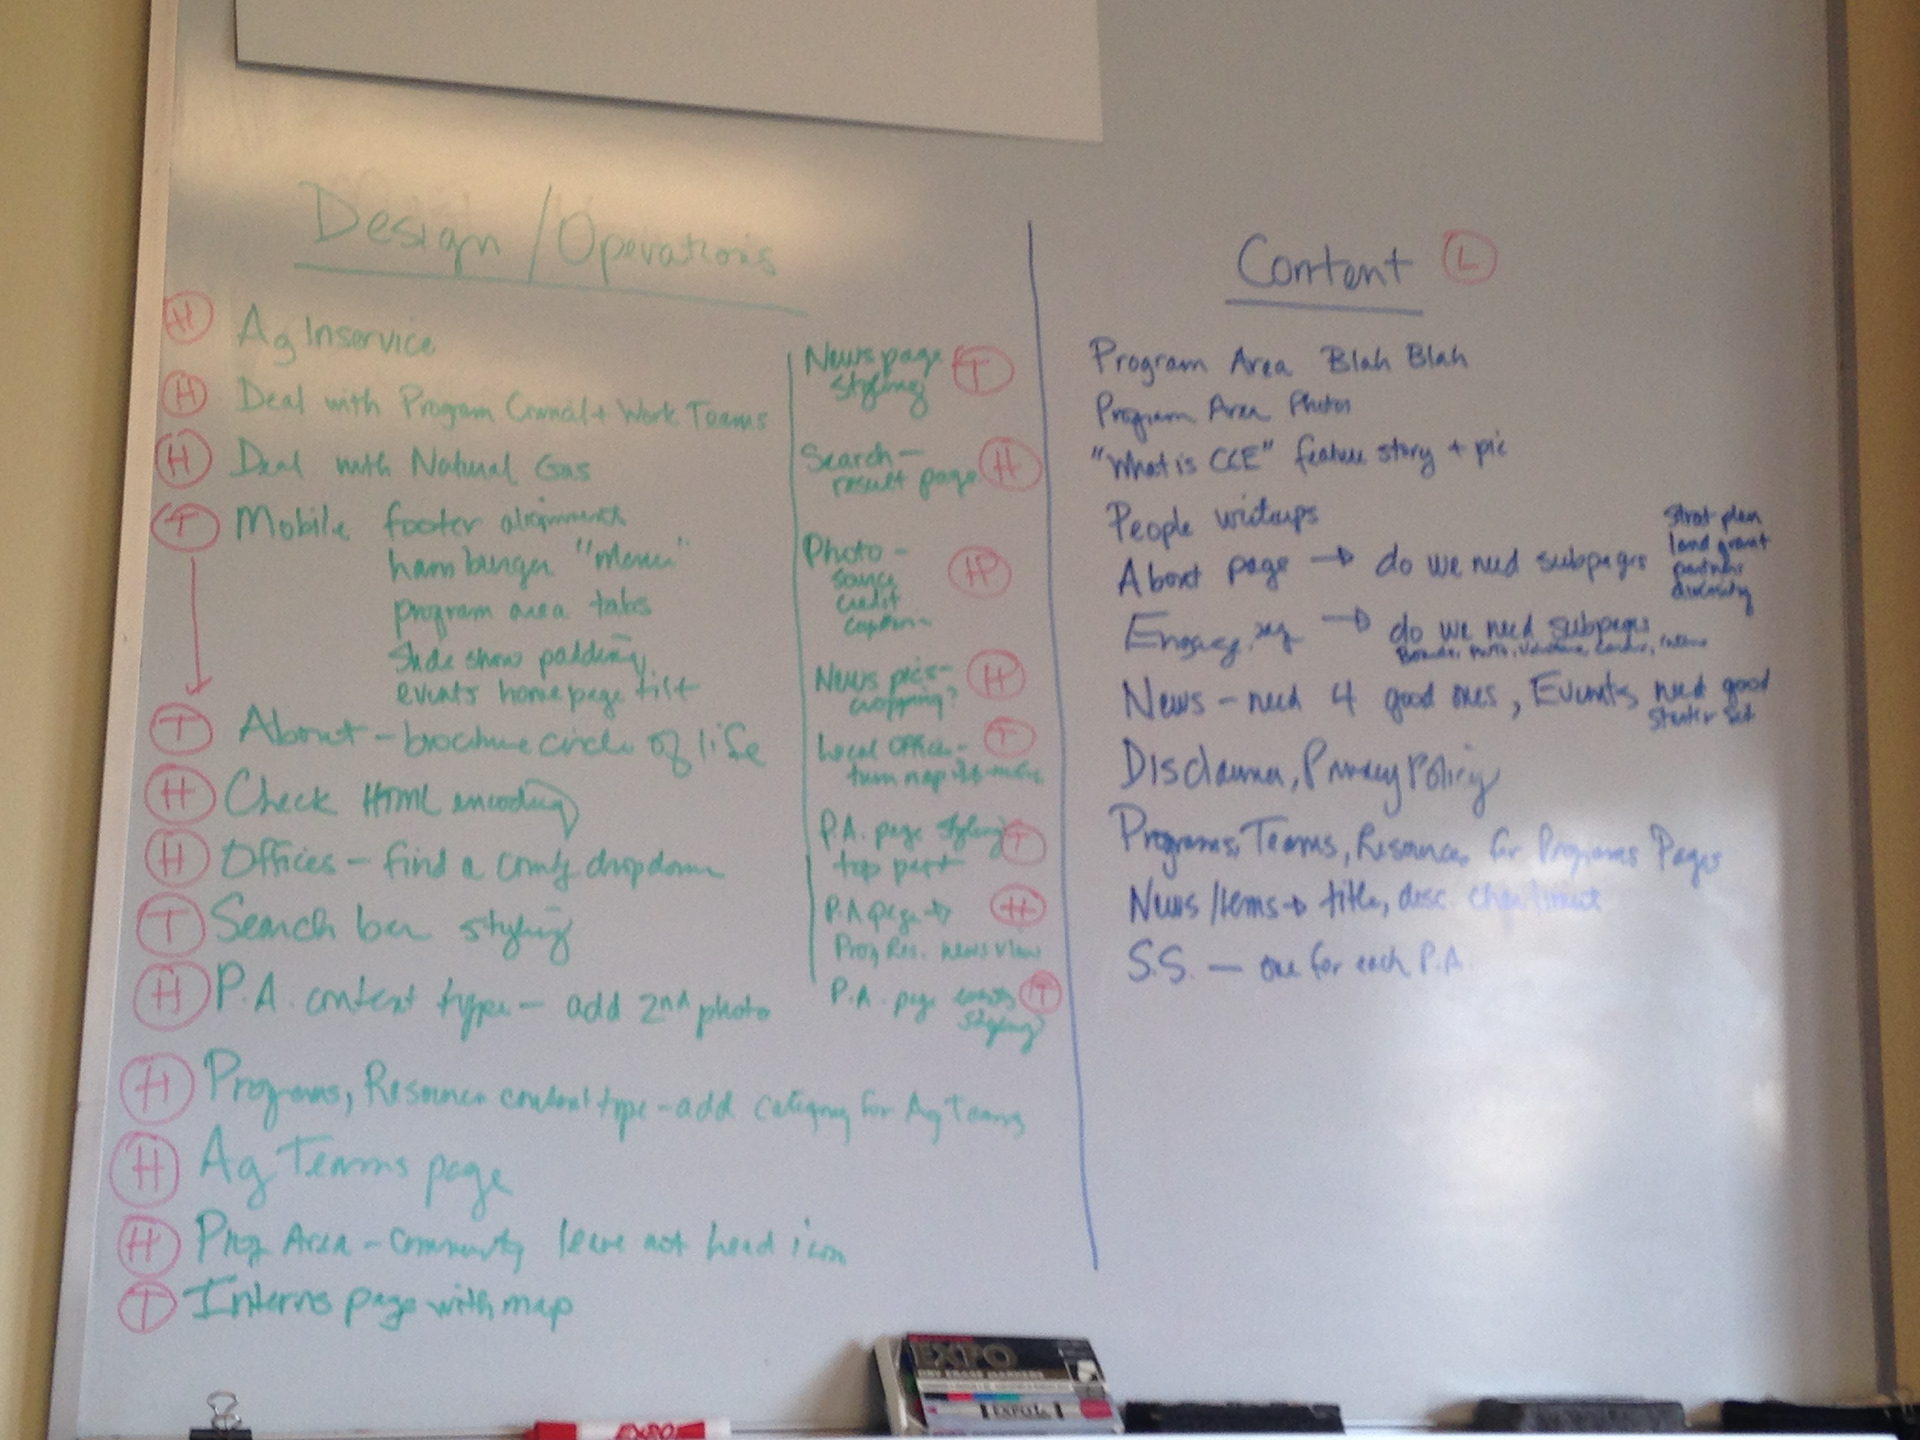 Design / Operations
H Ag Inservice
H Deal with Program Council + Work Teams
H Deal with Natural Gas
T Mobile footer alignment
hamburger "menu"
program area tabs
Slide show padding
events homepage tilt
T About - brochure circle of life
H Check HTML encoding
H Offices - find a county dropdown
T Search bar styling
H P.A. content type - add 2nd photo
H Programs, Resources content type - add category for Ag Teams
H Ag Teams page
H Prog Area - Community leave not head icon
T Interns page with map
News page T
styling
Search - H
result page
Photo - HP
source
credit
caption
News pics - H
cropping?
Local Office - T
turn map
P.A. page styling T
top part
P.A page → H
Prog Res. news view
P.A. page events T
styling
Content L
Program Area Blah Blah
Program Area Photos
"What is CCE" feature story + pic
People writeups
About page → do we need subpages
Strat plan
land grant
partners
diversity
Engage → do we need subpages
News - need 4 good ones, Events need good
starter set
Disclaimer, Privacy Policy
Programs, Teams, Resources for Programs Pages
News Items → title, desc.
S.S. — one for each P.A.
EXPO
DRY ERASE MARKERS
EXPO
EXPO